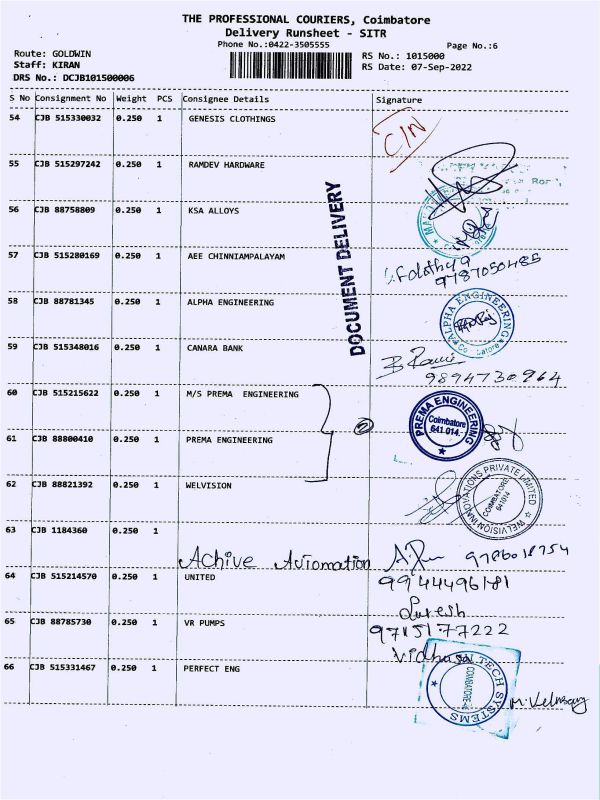 THE PROFESSIONAL COURIERS, Coimbatore
Delivery Runsheet - SITR
Phone No.:0422-3505555
Page No.:6
Route: GOLDWIN
RS No.: 1015000
Staff: KIRAN
RS Date: 07-Sep-2022
DRS No.: DCJB101500006
S No Consignment No Weight PCS Consignee Details Signature
54 CJB 515330032 0.250 1 GENESIS CLOTHINGS C/N
55 CJB 515297242 0.250 1 RAMDEV HARDWARE
DOCUMENT DELIVERY
56 CJB 88758809 0.250 1 KSA ALLOYS
57 CJB 515280169 0.250 1 AEE CHINNIAMPALAYAM
9787050485
58 CJB 88781345 0.250 1 ALPHA ENGINEERING
ALPHA ENGINEERING
59 CJB 515348016 0.250 1 CANARA BANK
9894730964
60 CJB 515215622 0.250 1 M/S PREMA ENGINEERING
PREMA ENGINEERING
Coimbatore
641 014.
2
61 CJB 88800410 0.250 1 PREMA ENGINEERING
62 CJB 88821392 0.250 1 WELVISION
WELVISION INNOVATIONS PRIVATE LIMITED
COIMBATORE
641014
63 CJB 1184360 0.250 1
Achive Automation 9786018754
64 CJB 515214570 0.250 1 UNITED
9944496181
65 CJB 88785730 0.250 1 VR PUMPS
9715177222
66 CJB 515331467 0.250 1 PERFECT ENG
TECH SYSTEMS
COIMBATORE-4